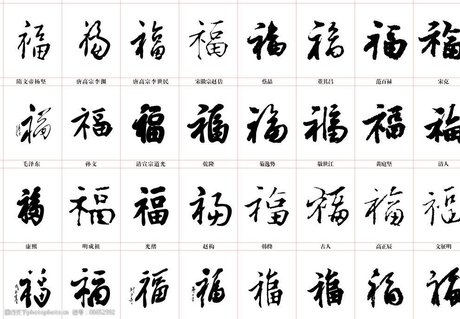 福 福 福 福 福 福 福 福
隋文帝杨坚 唐高宗李渊 唐高宗李世民 宋徽宗赵佶 董其昌 范百禄 宋克
福 福 福 福 福 福 福 福
毛泽东 孙文 清宣宗道光 乾隆 黄庭坚 清人
福 福 福 福 福 福 福 福
康熙 明成祖 光绪 赵构 古人 高正辰
福 福 福 福 福 福 福 福